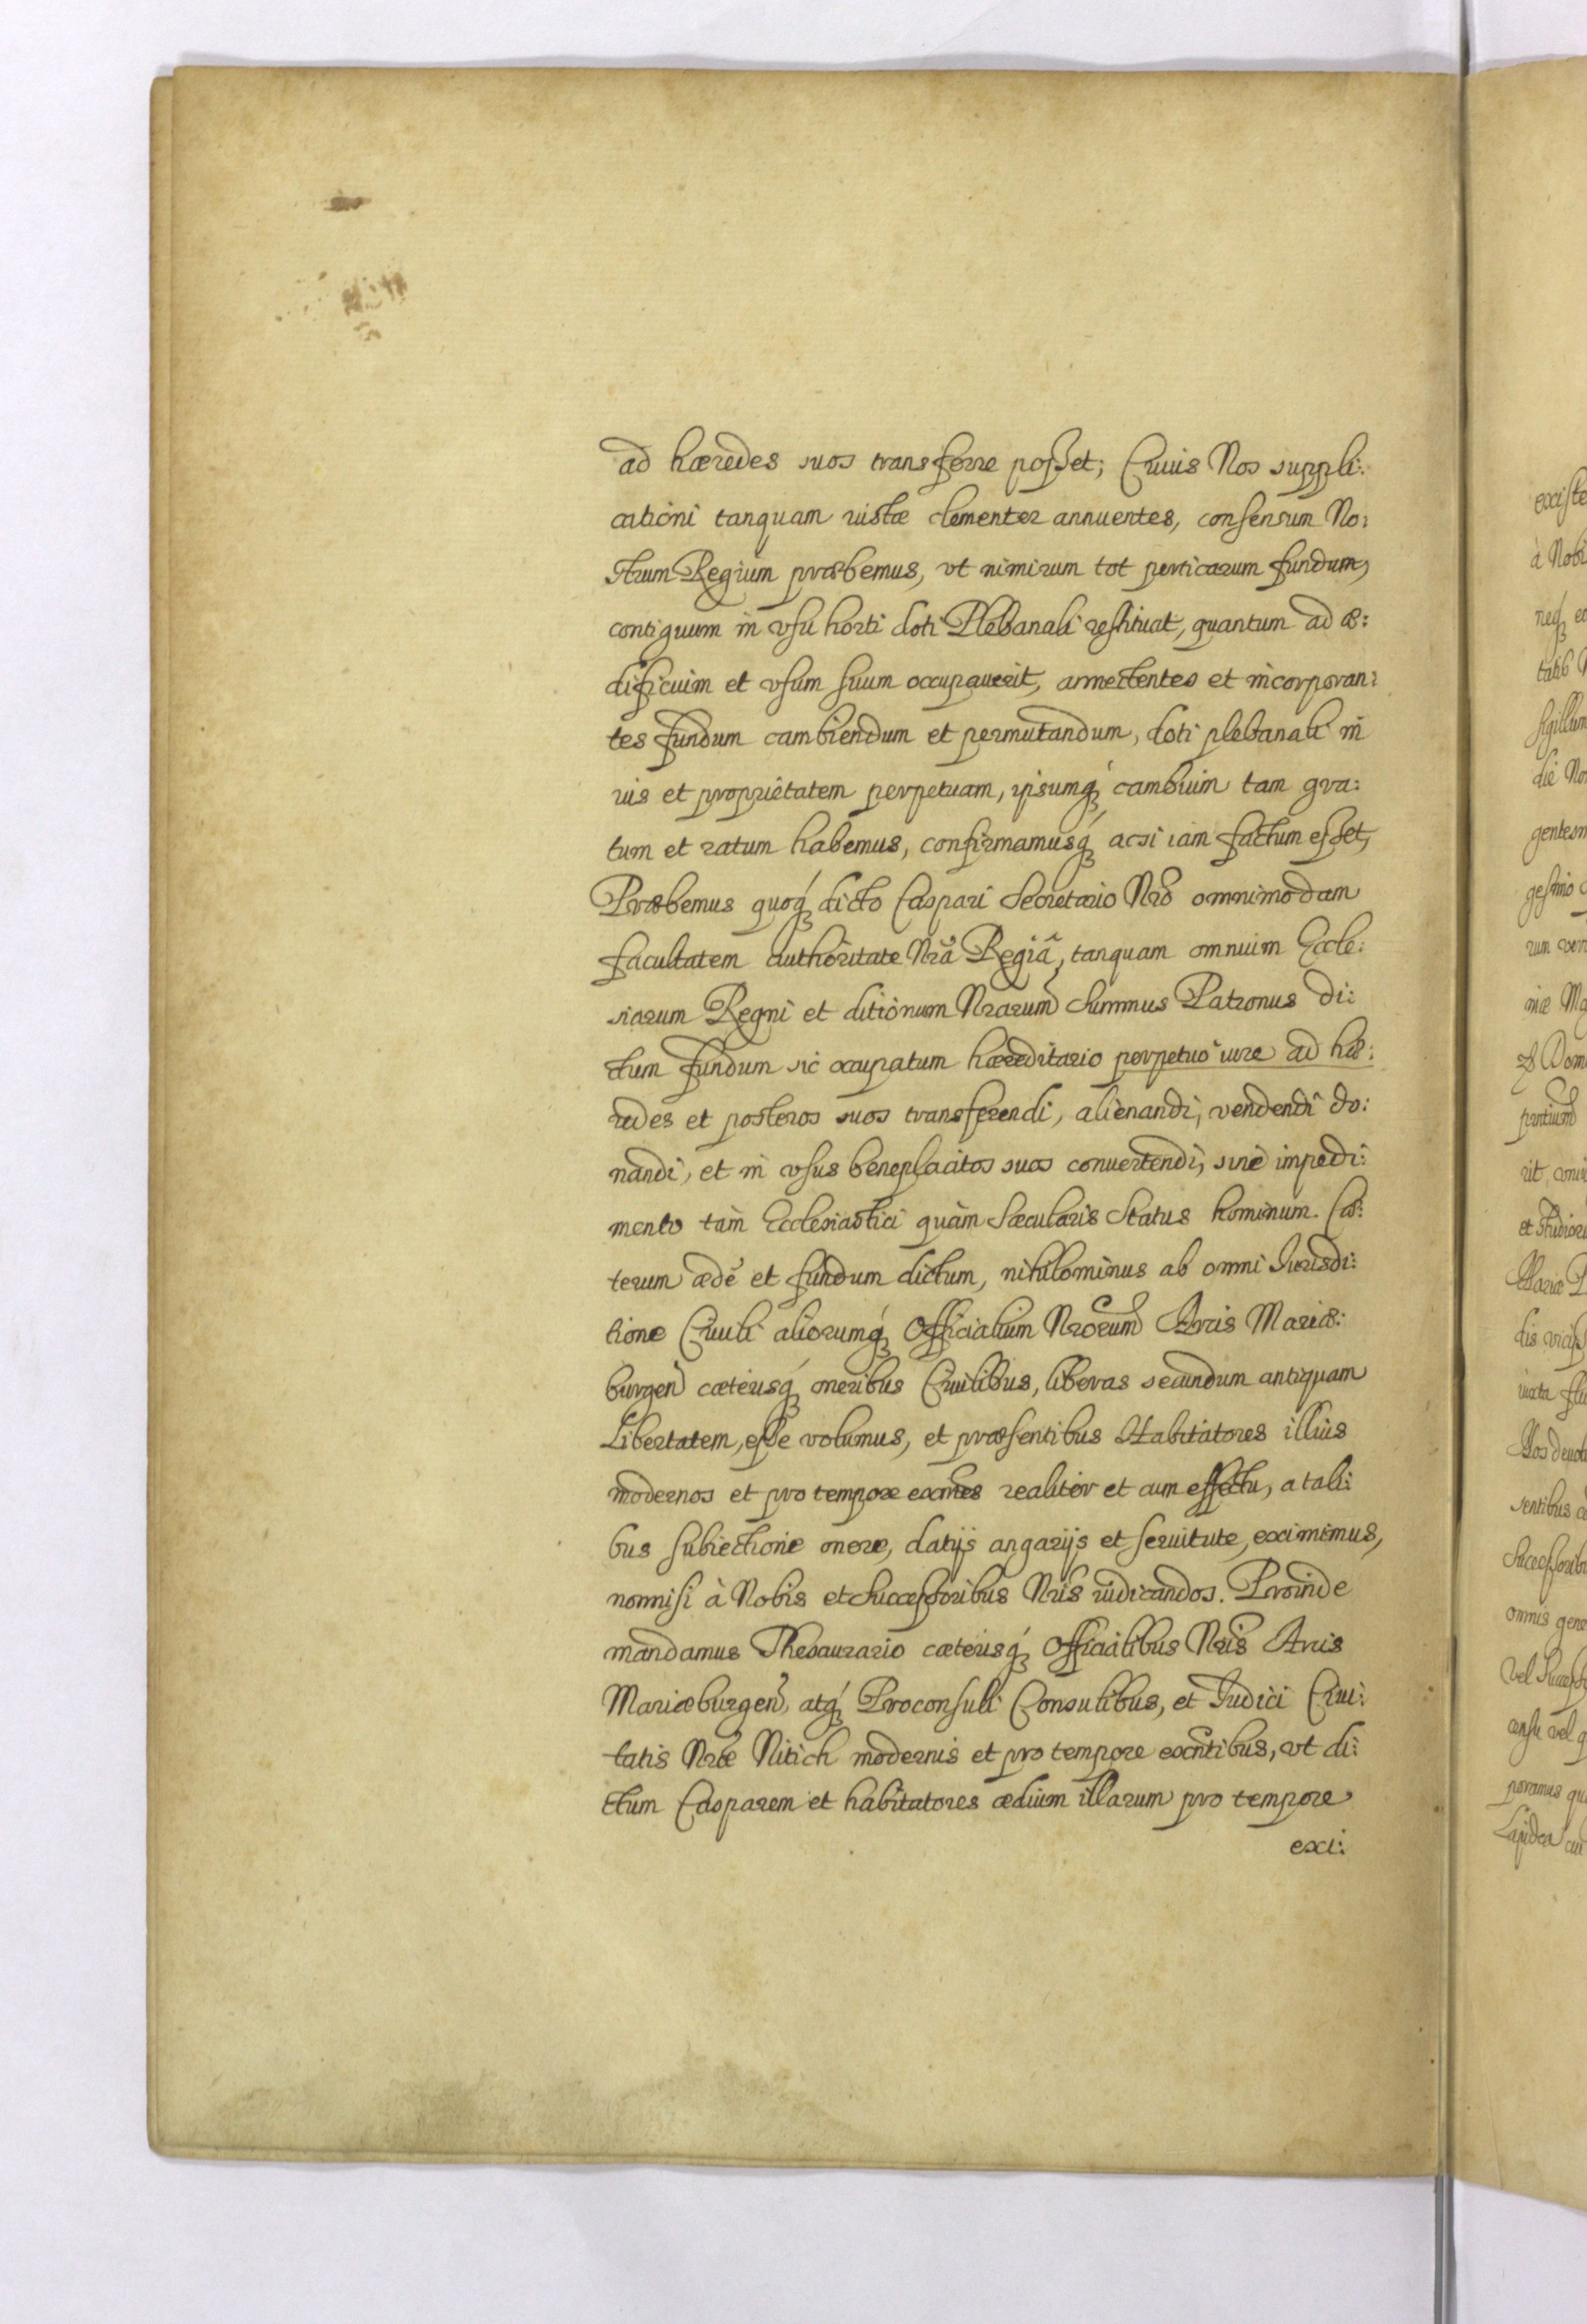 ad hæredes suos transferre posset; Cuius Nos suppli:
cationi tanquam iustæ clementer annuentes, consensum No:
strum Regium præbemus, vt nimirum tot perticarum fundum,
contiguum in vsu horti doti Plebanali restituat, quantum ad æ:
dificium et vsum suum occupauerit, annectentes et incorporan:
tes fundum cambiendum et permutandum, doti plebanali in
ius et proprietatem perpetuam, ipsumq́ cambium tam gra:
tum et ratum habemus, confirmamusq́ acsi iam factum esset,
Præbemus quoq́ dicto Caspari Secretario Nr̃o omnimodam
facultatem authoritate Nr̃a Regiâ, tanquam omnium Eccle:
siarum Regni et ditionum Nr̃arum Summus Patronus di:
ctum fundum sic occupatum hæreditario perpetuo iure ad hæ:
redes et posteros suos transferendi, alienandi, vendendi do:
nandi, et in vsus beneplacitos suos conuertendi, sine impedi:
mento tàm Ecclesiastici quàm Sæcularis Status hominum. Cæ:
terum æde et fundum dictum, nihilominus ab omni Iurisdi:
tione Ciuili aliorumq́ Officialium Nr̃orum Arcis Mariæ:
burgen̄ cæterisq́ oneribus Ciuilibus, liberas secundum antiquam
Libertatem, esse volumus, et præsentibus Habitatores illius
modernos et pro tempore exñtes realiter et cum effectu, a tali:
bus subiectione onere, datijs angarijs et seruitute, eximimus,
nonnisi à Nobis et Successoribus Nr̃is iudicandos. Proinde
mandamus Thesaurario cæterisq́ Officialibus Nr̃is Arcis
Mariæburgen̄, atq́ Proconsuli Consulibus, et Iudici Ciui:
tatis Nr̃æ Nitich modernis et pro tempore exñtibus, vt di:
ctum Casparem et habitatores ædium illarum pro tempore
exi:
existe
à Nobi
neq́
gesimo
niæ
Dom
et studior
iuxta
omnis gene
Lapidea